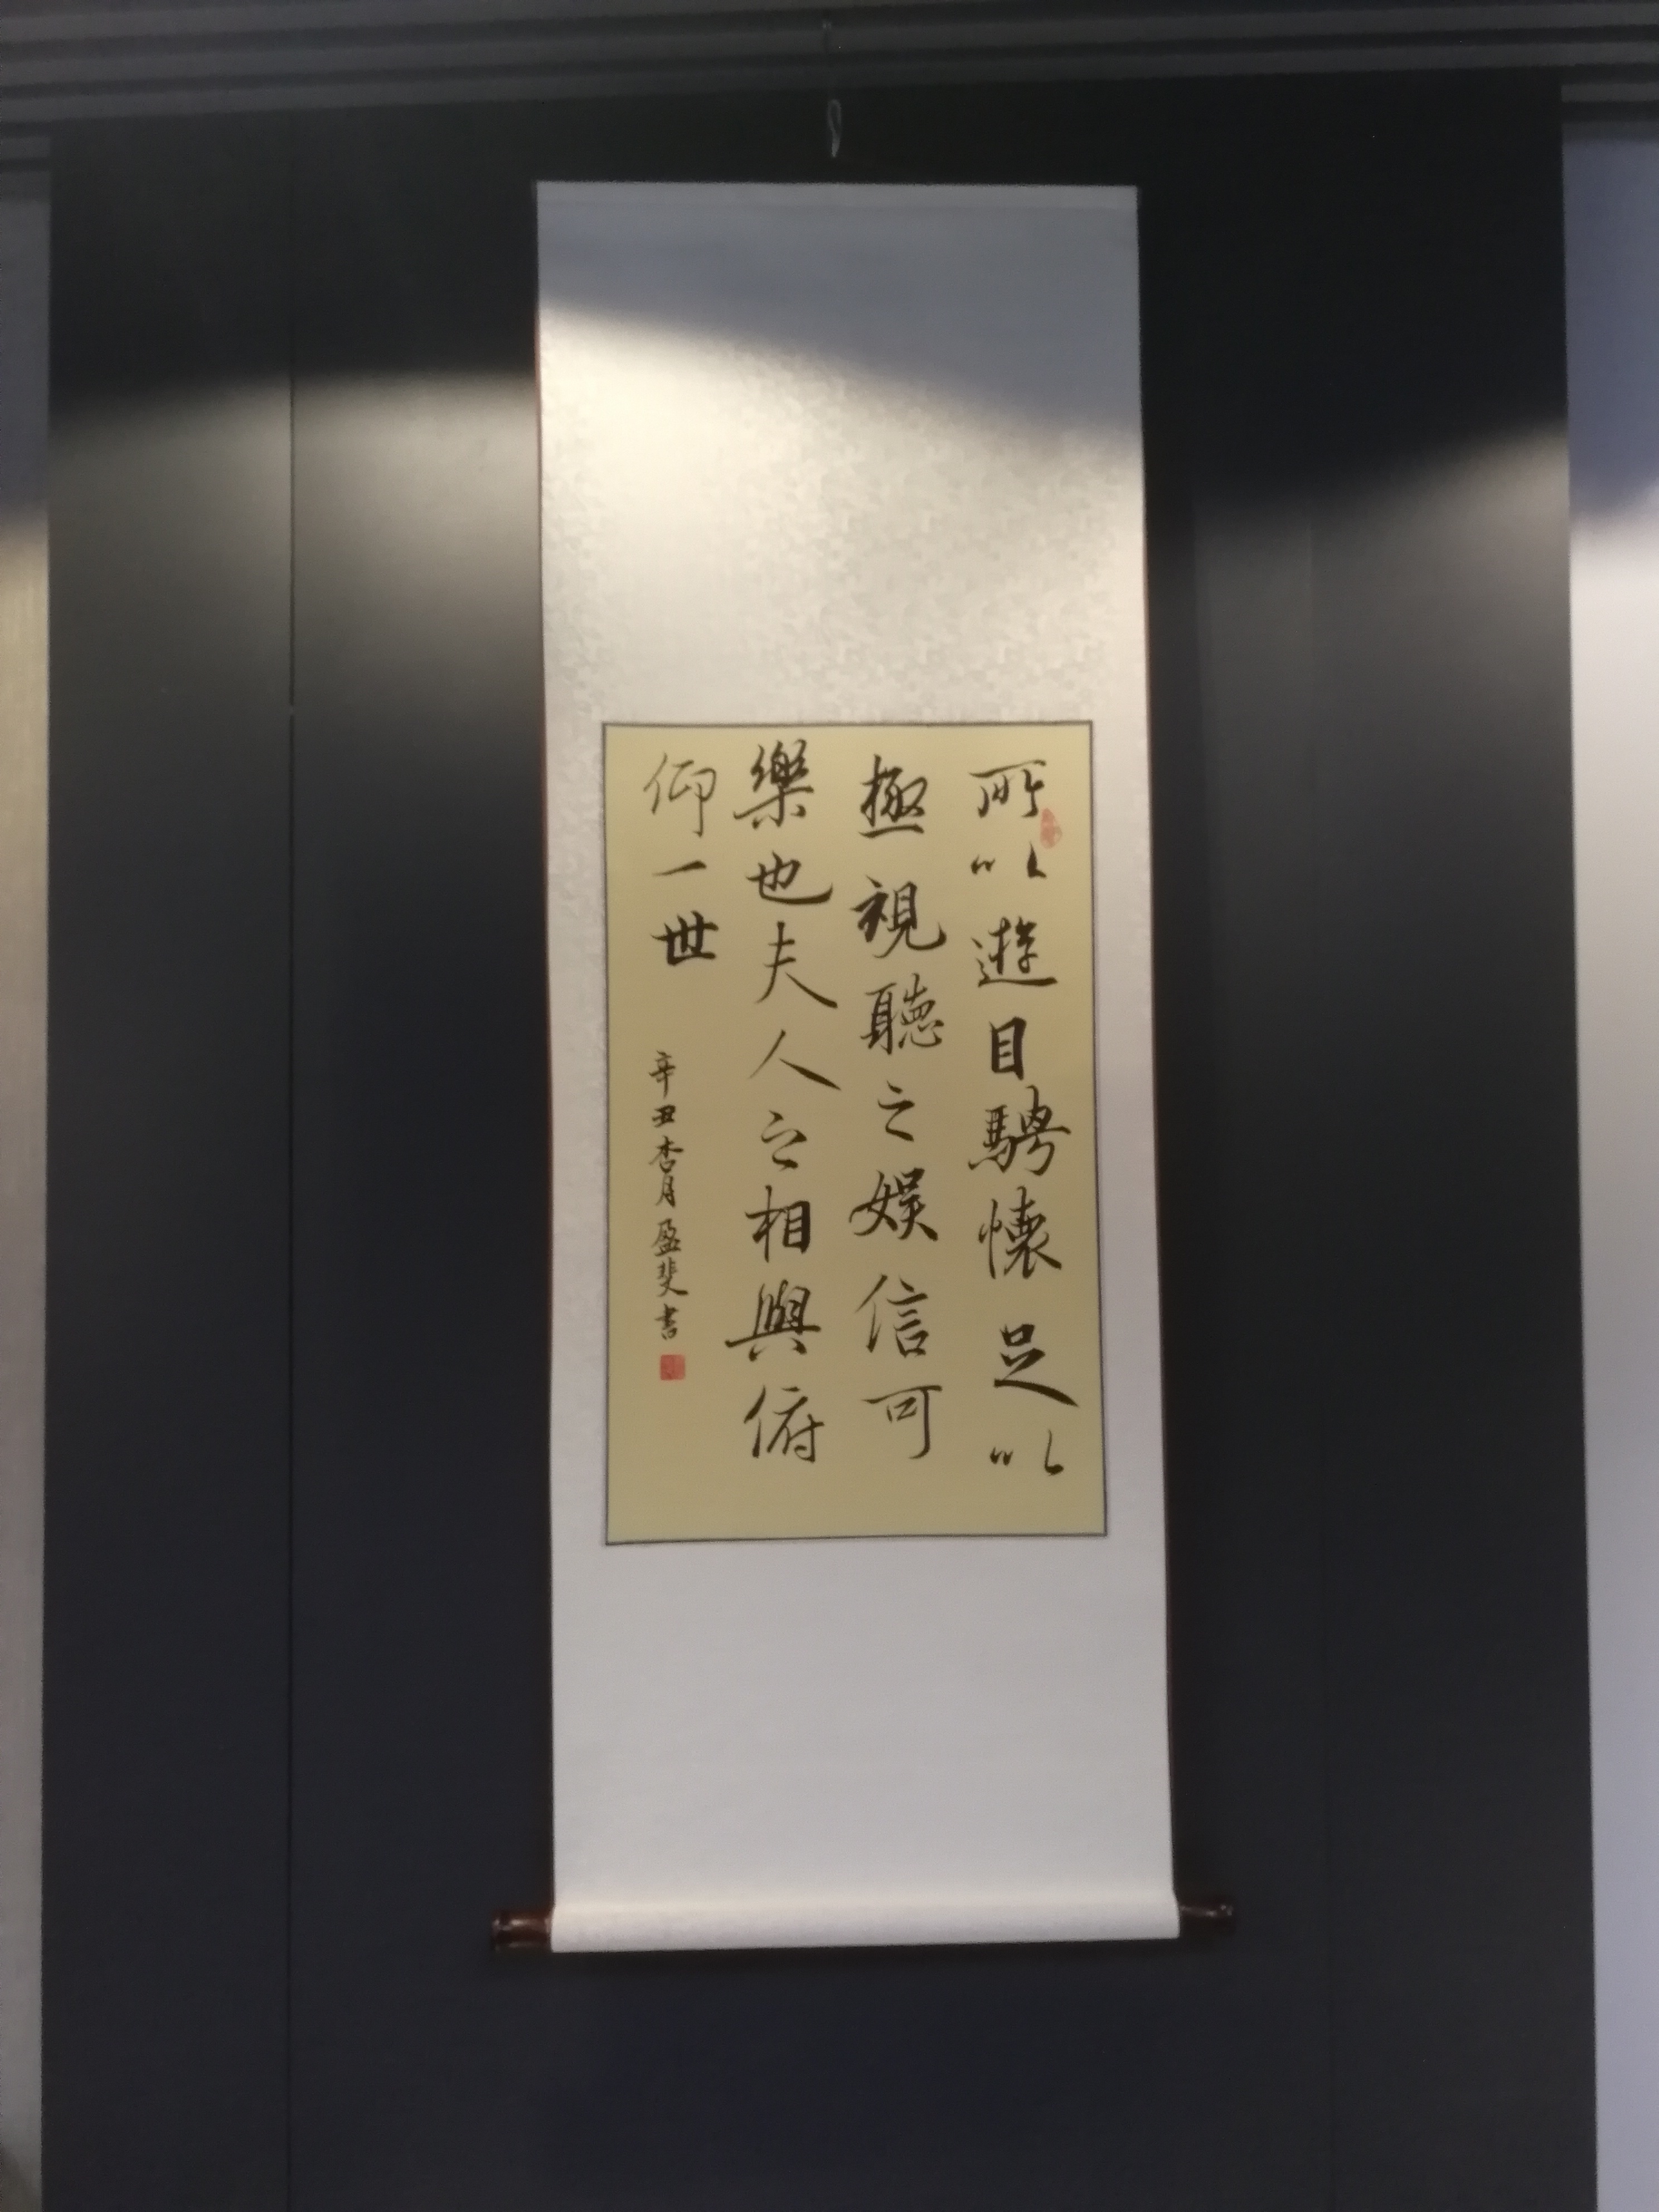 所以遊目騁懷足以
極視聽之娛信可
樂也夫人之相與俯
仰一世
辛丑杏月盈斐書